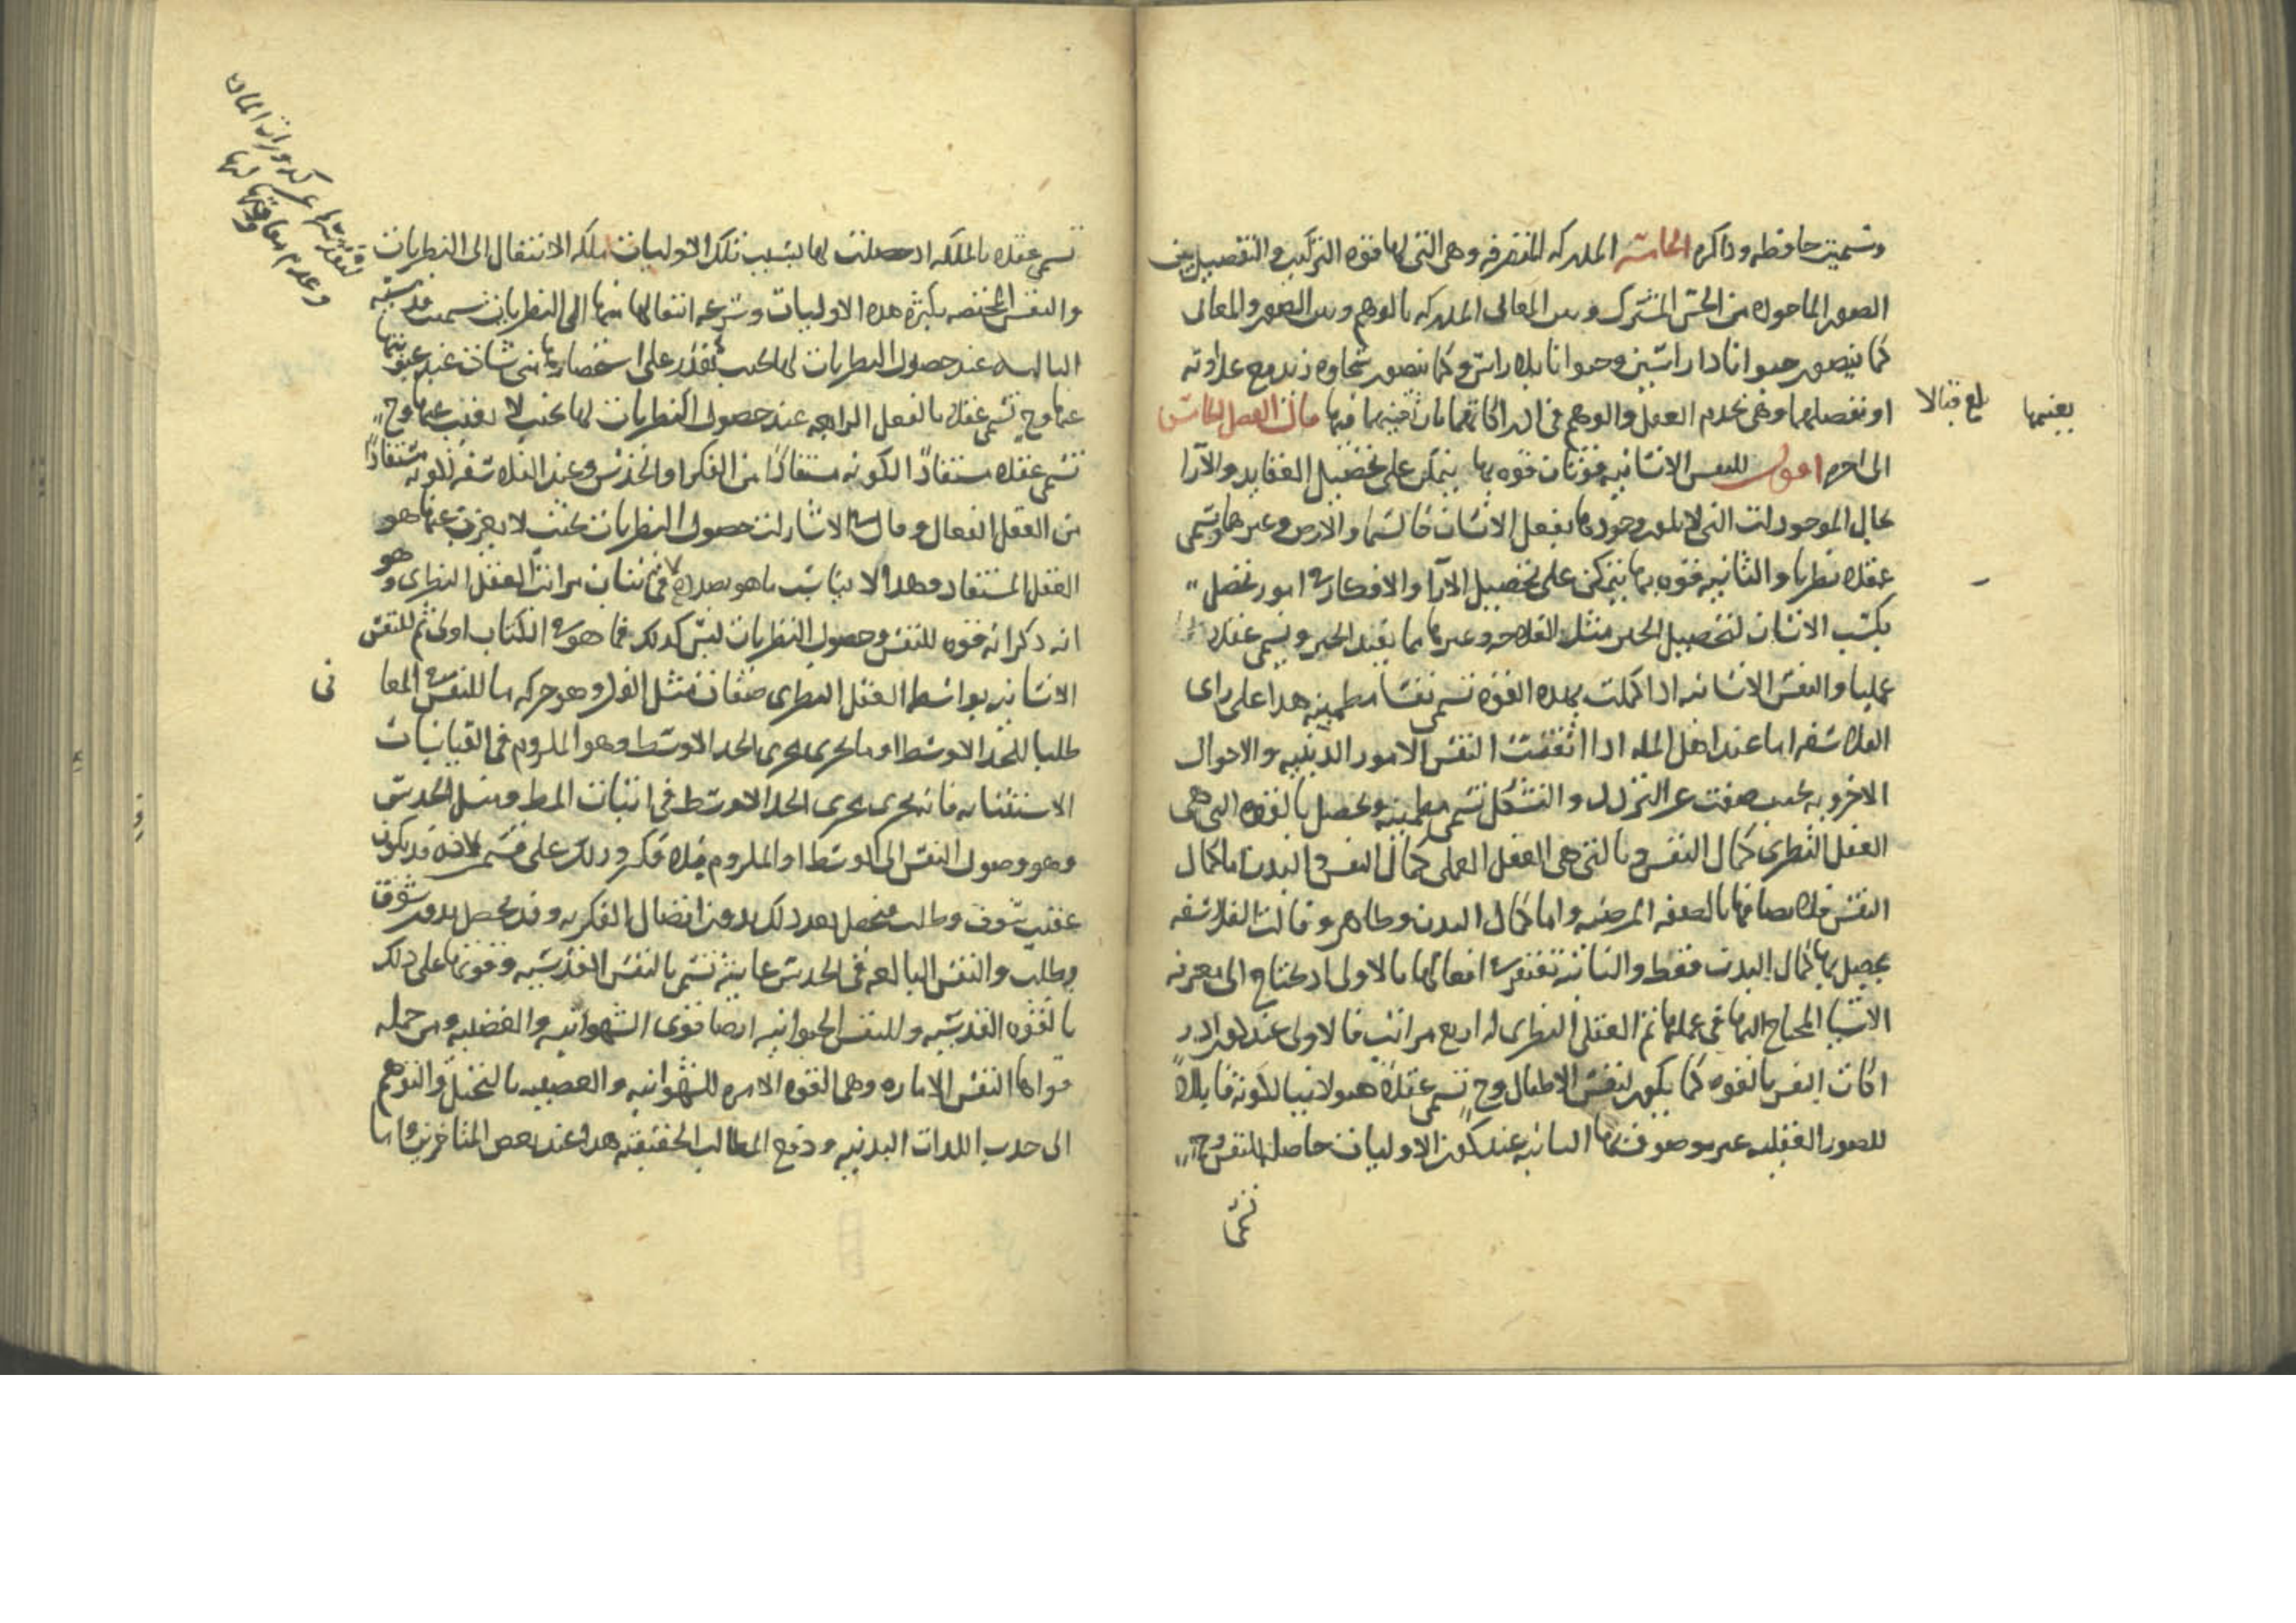 وسميت حافظه وذاكره الخامسه المدركه المتصرفه وهى التى لها قوه التركيب والتفصيل بين
الصور الماخوذه من الحس المشترك وبين المعانى المدركه بالوهم وبين الصور والمعانى
كما يتصور حيوانا ذا راسين وحيوانا بلا راس وكما يتصور سخاوه زيد مع عداوته
او تفصلهما وهى تخدم العقل والوهم فى ادراكاتهما قال الفصل الخامس
الى اخره اقول للنفس الانسانيه قوتان قوه بها يتمكن على تحصيل العقايد والآرا
بحال الموجودات التى لا يلم وجودها بفعل الانسان كالسما والارض وغيرها وتسمى
عقلا نظريا والثانيه قوه بها يتمكن على تحصيل الارا والافكار فى امور تحصل
بكسب الانسان لتحصيل الخير مثل الفلاحه وغيرها مما يفيد الخير ويسمى عقلا
عمليا والنفس الانسانيه اذا كملت بهذه القوه تسمى نفسا مطمينه هذا على راى
الفلاسفه اما عند اهل المله اذا اتقنت النفس الامور الدينيه والاحوال
الاخرويه بحيث صفت عن التزلزل والتشكك تسمى مطمينه ويحصل بالقوه التى هى
العقل النظرى كمال النفس وبالتى هى العقل العملى كمال النفس والبدن اما كمال
النفس فلاتصافها بالصفه المرضيه واما كمال البدن فظاهر وقالت الفلاسفه
يحصل بها كمال البدن فقط والثانيه تفتقر فى افعالها بالاولى اذ تحتاج الى معرفه
الاشيا المحتاج اليها فى عملها ثم العقل النظرى له اربع مراتب فالاولى عند كون ادر
اكات النفس بالقوه كما يكون لنفس الاطفال وح تسمى عقلا هيولانيا لكونه قابلا
للصور العقليه غير موصوف بها الثانيه عند كون الاوليات حاصله للنفس وح
تسمى
بلغ قبالا
تسمى عقلا بالملكه اذ حصلت لها بسبب تلك الاوليات ملكه الانتقال الى النظريات
والنفس المختصه بكثره هذه الاوليات وسرعه انتقالها منها الى النظريات سميت قدسيه
الثالثه عند حصول النظريات لها بحيث تقدر على استحضارها متى شات عند غيبوبتها
عنها وح تسمى عقلا بالفعل الرابعه عند حصول النظريات لها بحيث لا تغيب عنها وح
تسمى عقلا مستفادا لكونه مستفادا من الفكر او الحدس وعند الفلاسفه لكونه مستفادا
من العقل الفعال وقال فى الاشارات حصول النظريات بحيث لا يعزب عنها هو
العقل المستفاد وهذا لا يناسب ما هو بصدده فى بيان مراتب العقل النظرى وهو
انه ذكر انه قوه للنفس وحصول النظريات ليس كذلك فما هو فى الكتاب اولى ثم للنفس
الانسانيه بواسطه العقل النظرى صفتان مثل الفكر وهو حركه ما للنفس فى المعا
نى
طلبا للحد الاوسط او ما يجرى مجرى الحد الاوسط وهو الملزوم فى القياسات
الاستثنائيه فانه يجرى مجرى الحد الاوسط فى اثبات المط ومثل الحدس
وهو وصول النفس الى الاوسط او الملزوم بلا فكر وذلك على قسمين لانه قد يكون
عقيب شوق وطلب فيحصل بعد ذلك بدون اتصال الفكريه وقد يحصل بدون شوق
وطلب والنفس البالغه فى الحدس غايته تسمى بالنفس القدسيه وقوتها على ذلك
بالقوه القدسيه وللنفس الحيوانيه ايضا قوى الشهوانيه والغضبيه ومن جمله
قواها النفس الاماره وهى القوه الامره للشهوانيه والغضبيه بالتخيل والتوهم
الى جذب اللذات البدنيه ودفع المطالب الحقيقيه هذا عند بعض المتاخرين واما